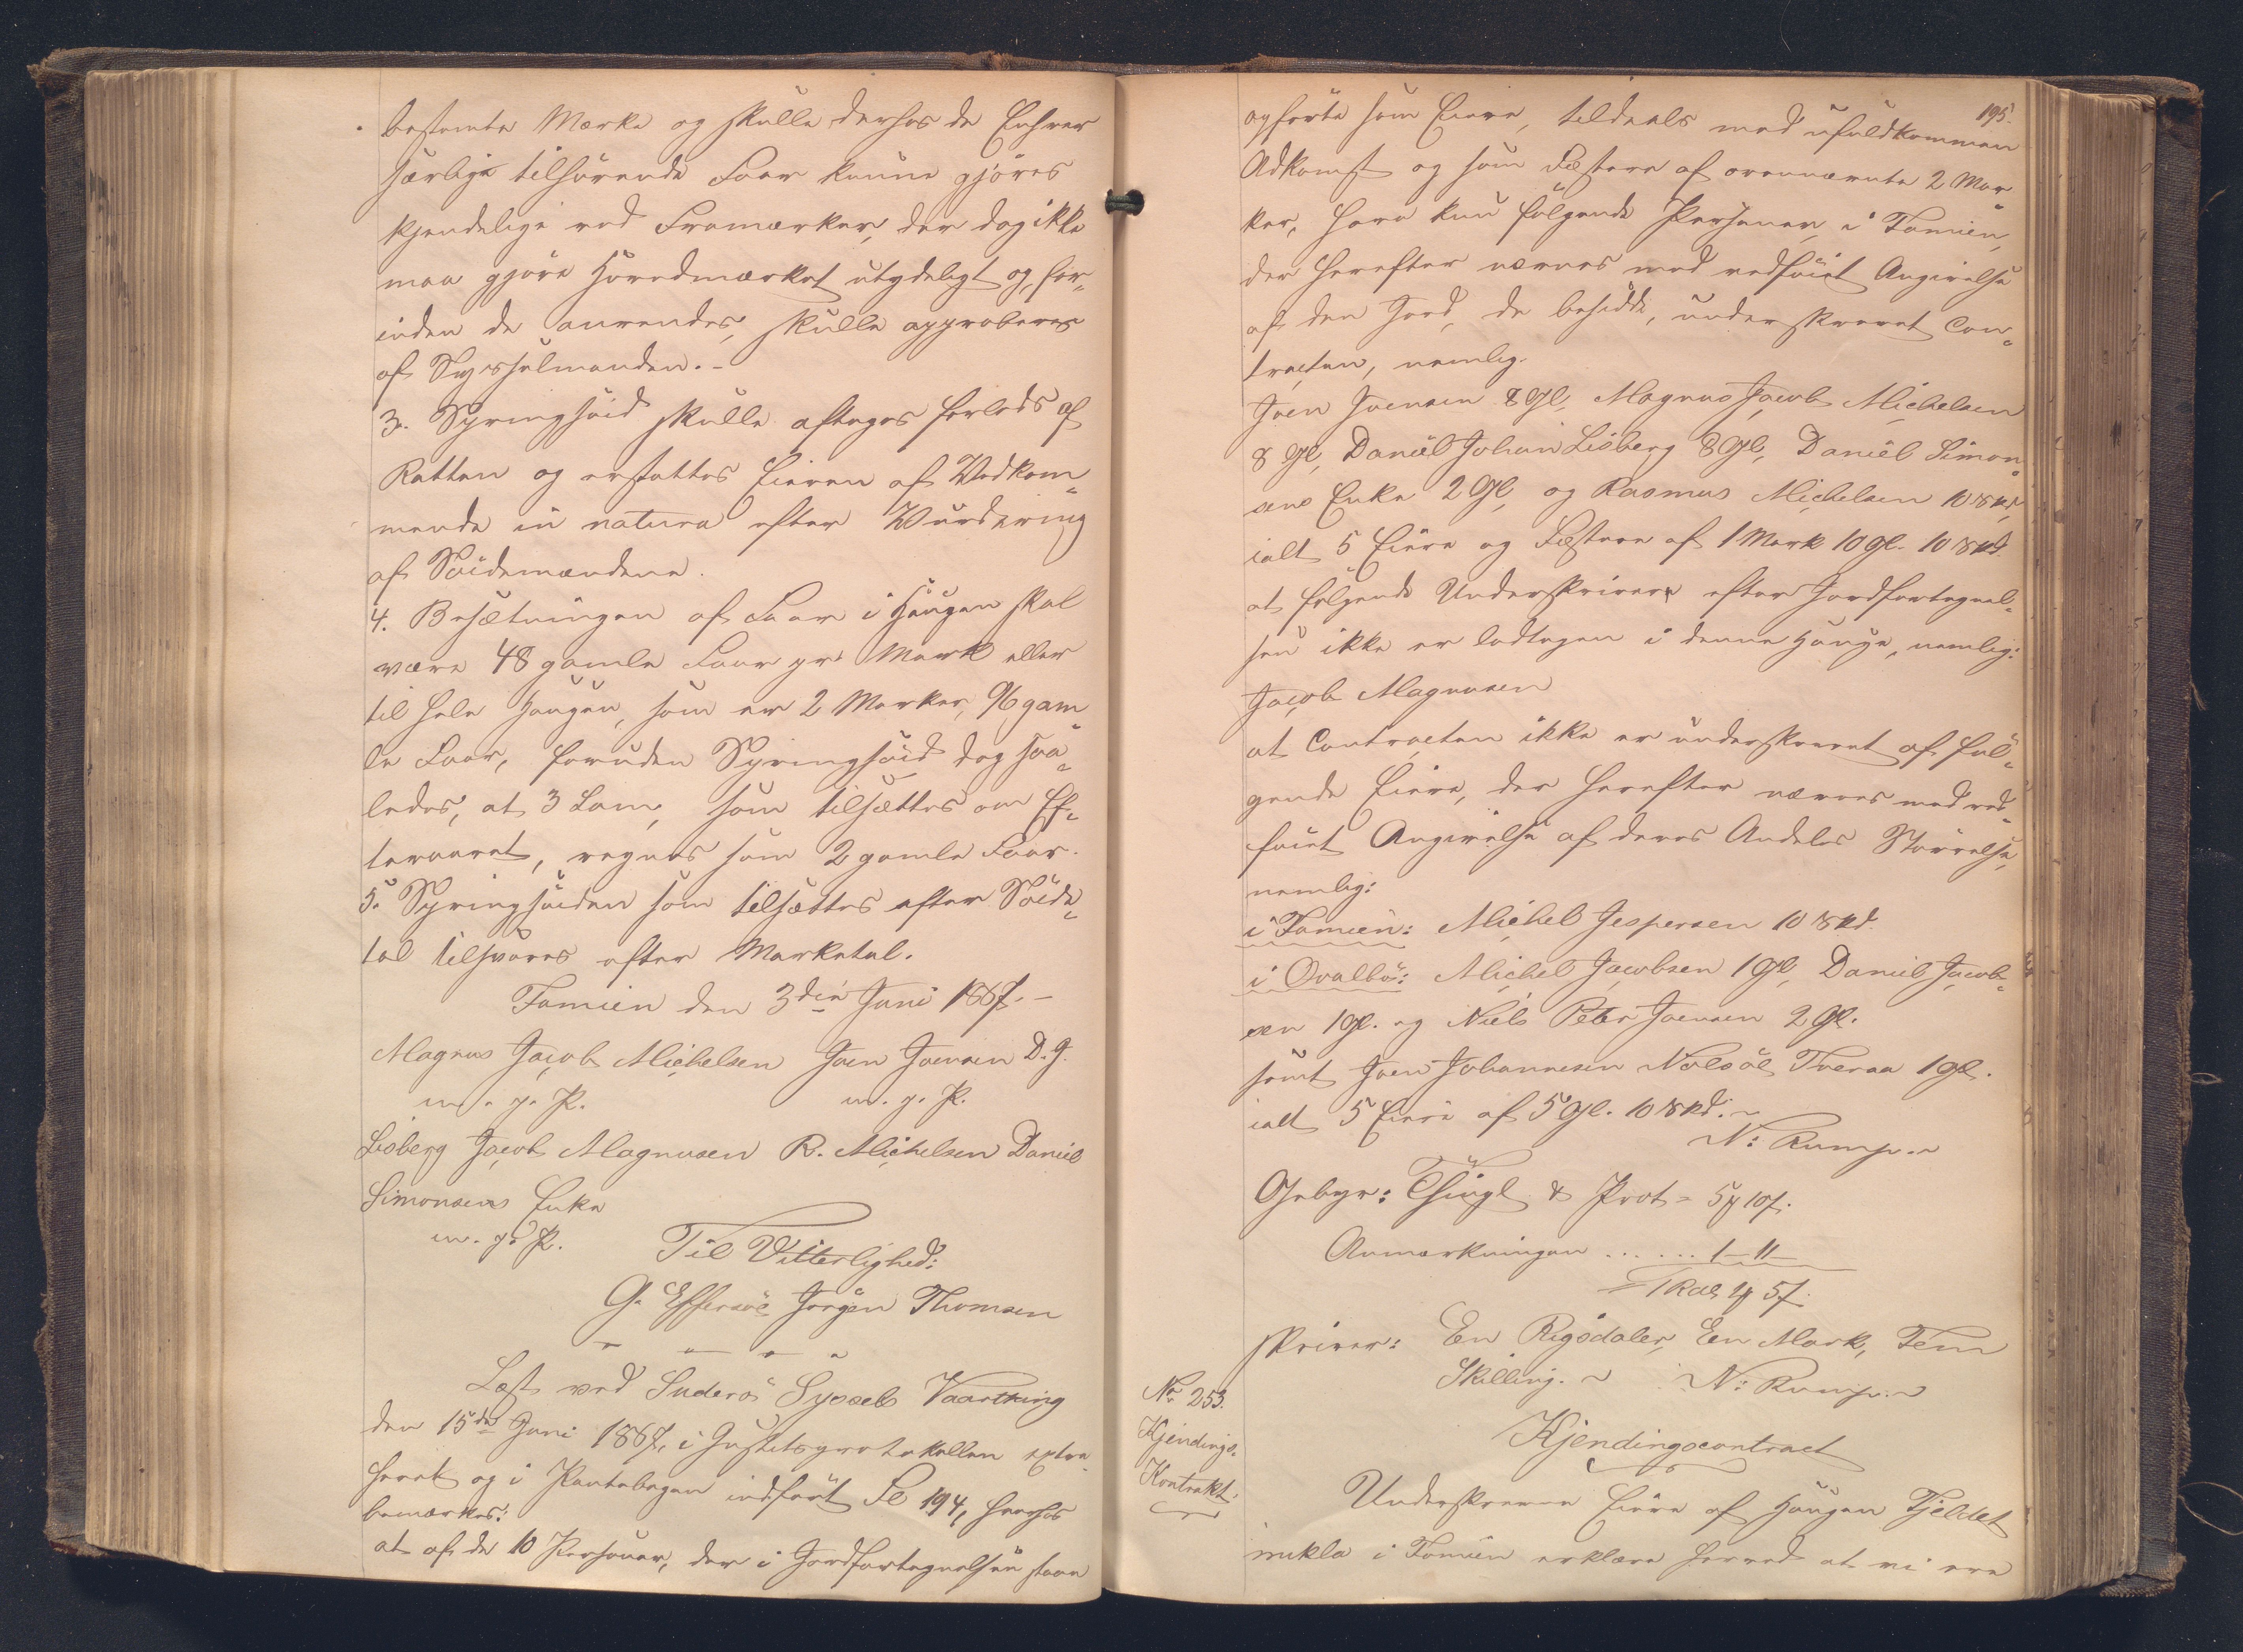 bestemte Mærke og skulle derhos de Enhver
særlige tilhørende Faar kunne gjøres
kjendelige ved Framærker, der dog ikke
maa gjøre Hovedmærket utydeligt og, for¬
inden de anvendes, skulle approberes
af Sysselmanden.-
3. Springsöid skulle aftages forlods af
Retten og erstattes Eieren af Vedkom¬
mende in natura efter Vurdering
af Söidemændene.
4. Besætningen af Faar i Haugen skal
være 48 gamle Faar pr. Mark eller
til hele Haugen, som er 2 Marker, 96 gam¬
le Faar, foruden Springsöid dog saa¬
ledes, at 3 Lam, som tilsættes om Ef¬
teraaret, regnes som 2 gamle Faar.
5. Springsöiden som tilsættes efter Söide¬
tal tilsvares efter Marketal.
Famien den 3die Juni 1867.-
Magnus Jacob Michelsen Joen Joensen D. J.
m. p. P. m. p. P.
Lisberg Jacob Magnusen R. Michelsen Daniel
Simonsens Enke
m. p. P. Til Vitterlighed:
G. Effersöe Jörgen Thomsen
Læst ved Suderö Syssels Vaarthing
den 15de Juni 1867, i Justitsprotokollen extra¬
heret og i Pantebogen indført Fo 194, hvorhos
bemærkes:
at af de 10 Personer, der i Jordfortegnelsen staae
195.
opførte som Eiere, tildeels med ufuldkommen
Adkomst og som Fæstere af ovennævnte 2 Mar¬
ker, have kun følgende Personer, i Famien,
der herefter nævnes med vedføiet Angivelse
af den Jord, de besidde, underskrevet Con¬
tracten, nemlig.
Joen Joensen 8 Gl, Magnus Jacob Michelsen
8 Gl, Daniel Johan Lisberg 8 Gl, Daniel Simon¬
sens Enke 2 Gl, og Rasmus Michelsen 10 Skd,
ialt 5 Eiere og Fæstere af 1 Mark 10 Gl. 10 Skd.
at følgende Underskrivere efter Jordfortegnel¬
sen ikke er lodtagen i denne Hauge, nemlig:
Jacob Magnusen
at Contracten ikke er underskrevet af føl¬
gende Eiere, der herefter nævnes med ved¬
føiet Angivelse af deres Andeles Størrelse,
nemlig:
i Famien: Michel Jespersen 10 Skd.
i Qvalbö: Michel Jacobsen 1 Gl, Daniel Jacob¬
sen 1 Gl. og Niels Peter Joensen 2 Gl.
samt Joen Johannesen Nolsöe, Tveraa 1 Gl.
ialt 5 Eiere af 5 Gl. 10 Skd.
N: Rump.
Gebyr: Thingl. & Prot = 5 ₰ 10 ß.
Anmærkningen ...... 1 - 11 -
= 1 Rdl 1 ₰ 5 ß.
skriver: Een Rigsdaler, Een Mark, Fem
Skilling. N: Rump.
No 253.
Kjendings¬
Kontrakt.
Kjendingscontract
Underskrevne Eiere af Haugen Fjeldet
mikla i Famien erklære herved at vi ere